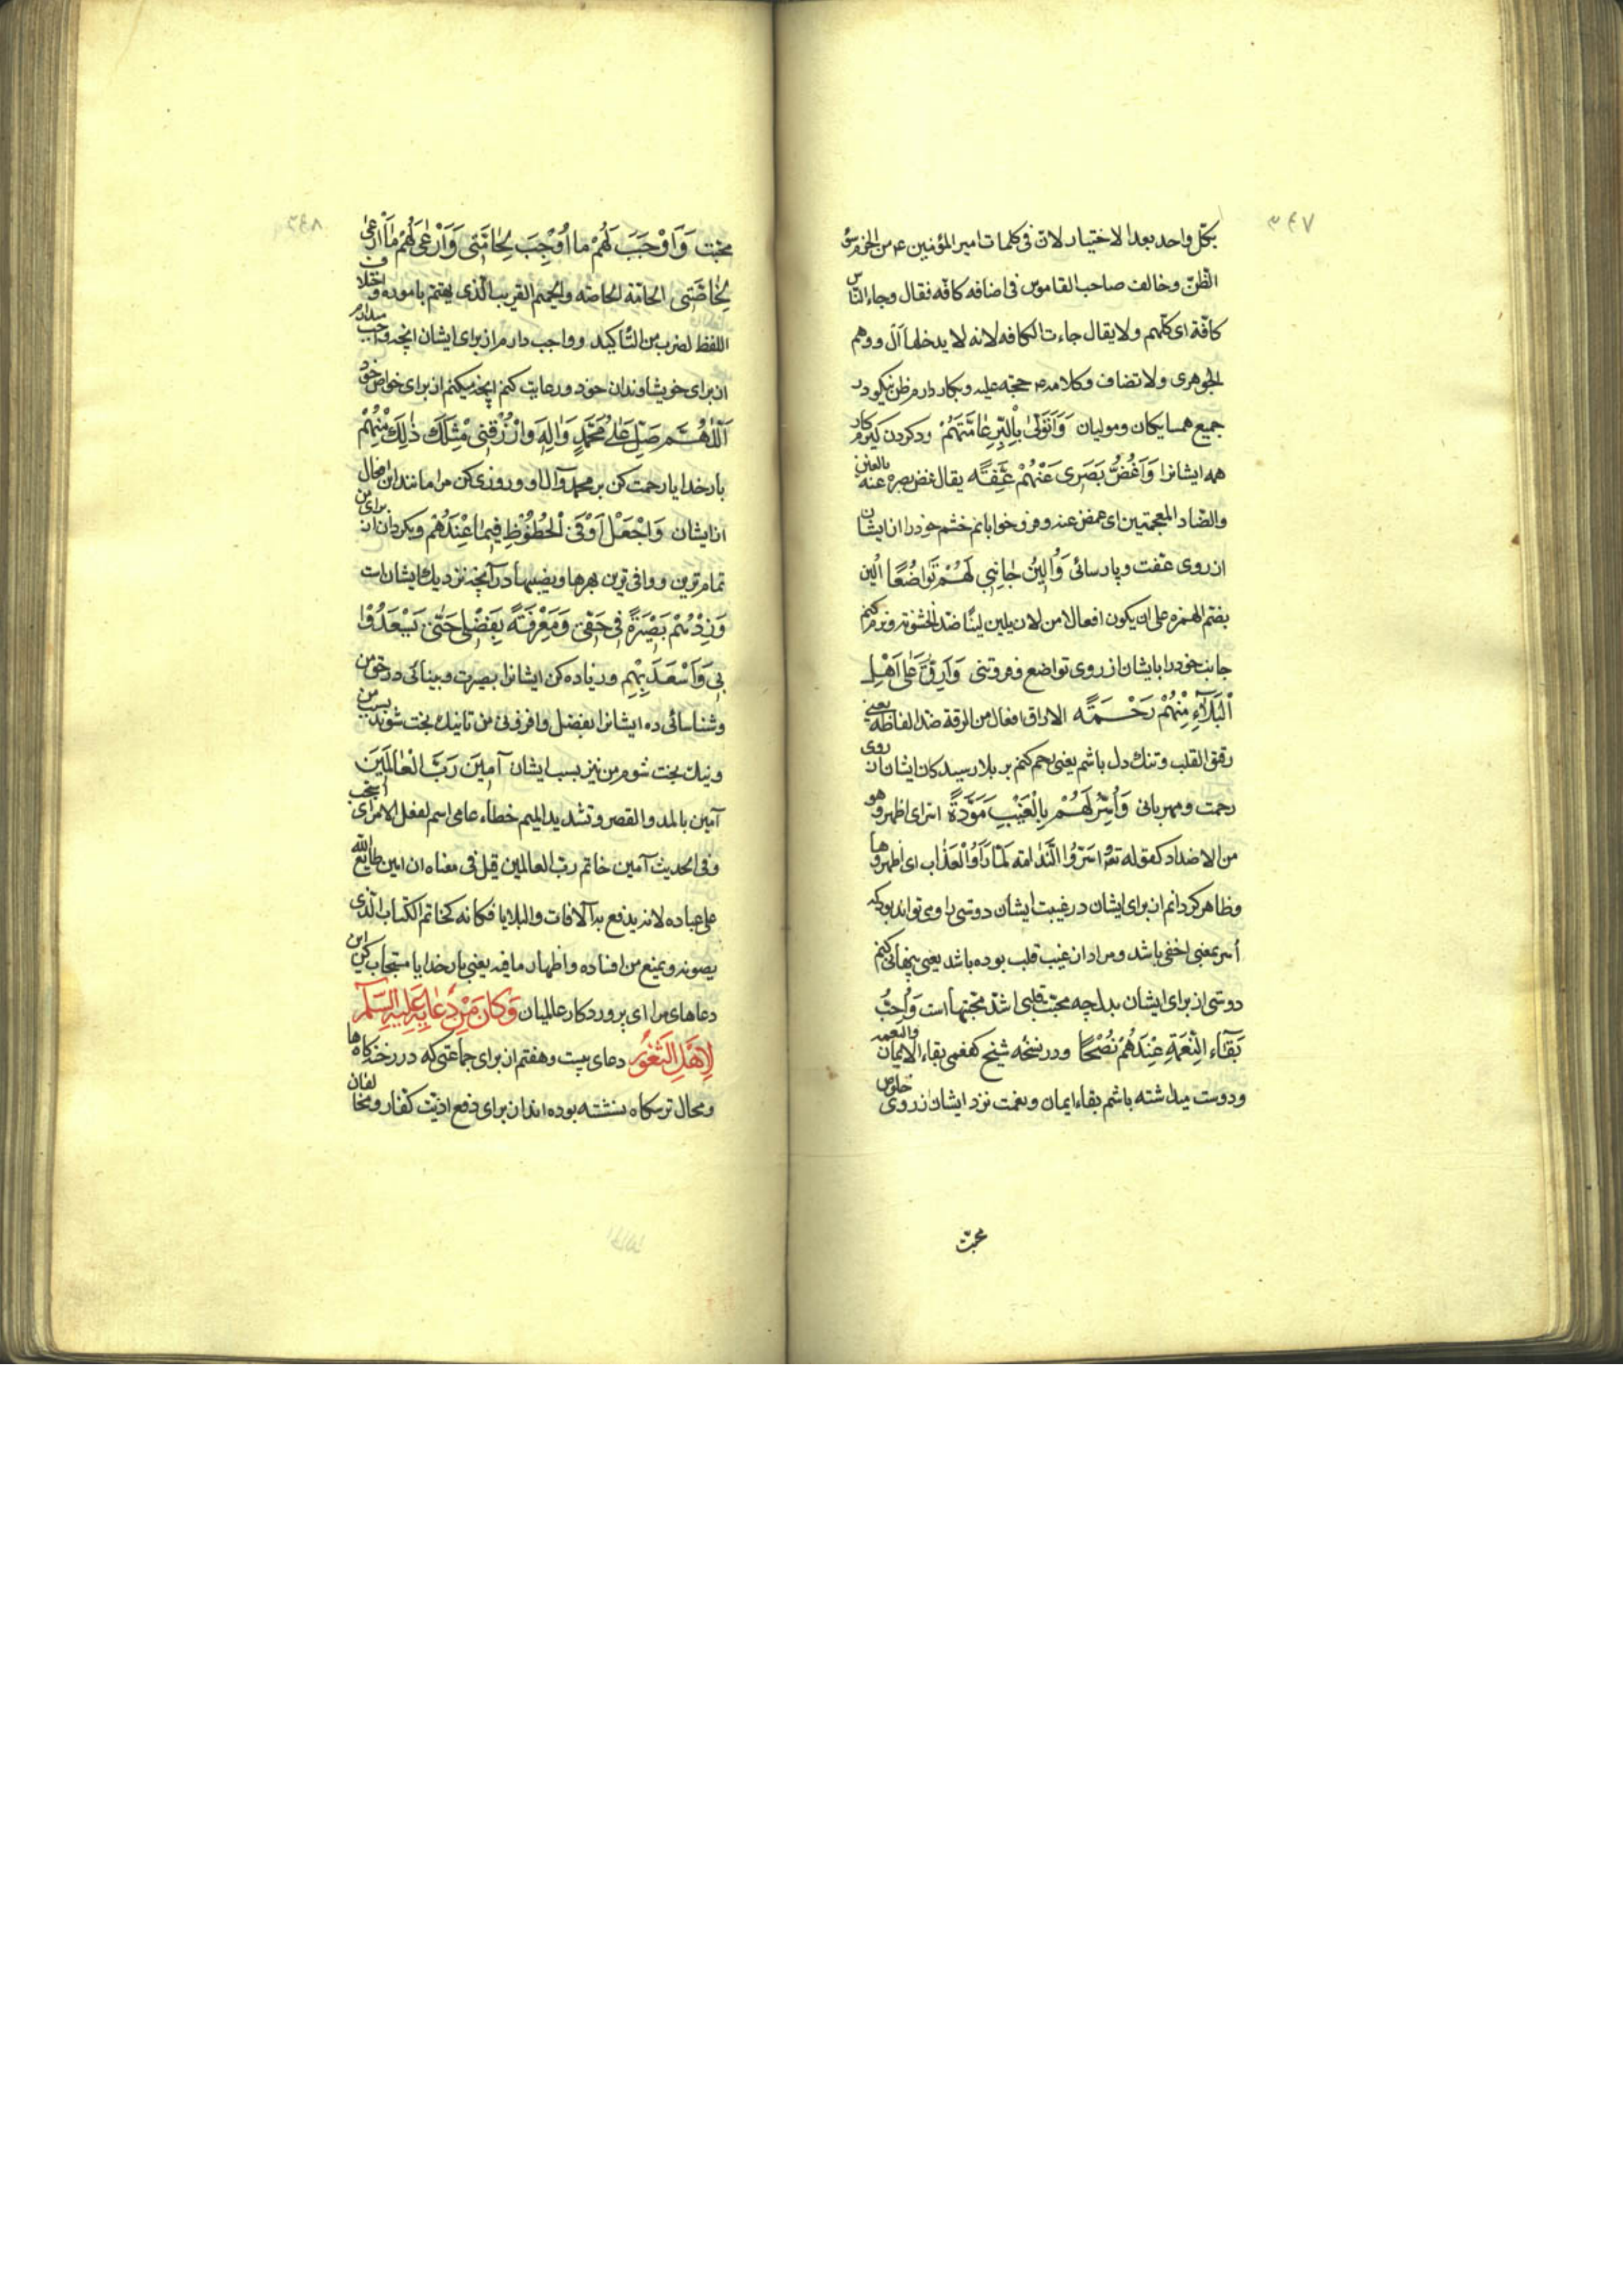 ۳۴۷
بکل واحد بعد الاختیار لان فی کلمات امیرالمؤمنین ع من الحزم سوء
الظن وخالف صاحب القاموس فی اضافه کافه فقال وجاء الناس
کافة ای کلهم ولا یقال جاءت الکافه لانه لا یدخلها آل ووهم
الجوهری ولا تضاف وکلامه ع حجة علیه وبکار دارم ظن نیکو در
جمیع همسایکان وموالیان وَاَتَوَلّیٰ بِالْبِرِّ عٰامَّتَهُمْ
همه ایشانرا وَاَغُضُّ بَصَری عَنْهُمْ عِفَّةً یقال غض بصره عنه بالغین
والضاد المعجمتین ای غمض عنه وفرو خوابانم خشم خود را از ایشان
از روی عفت وپارسائی وَاُلینُ جٰانِبی لَهُمْ تَواضُعًا الین
بضم الهمزه علی ان یکون افعالا من لان یلین لینًا ضد الخشونة ونرم کنم
جانب خود را با ایشان از روی تواضع وفروتنی وَاَرِقُّ عَلٰی اَهْلِ
الْبَلآءِ مِنْهُمْ رَحْمَةً الارقاق افعال من الرقة ضد الغلظة یعنی
رقیق القلب وتنک دل باشم یعنی رحم کنم بر بلا رسیدکان ایشان از روی
رحمت ومهربانی وَاُسِرُّ لَهُمْ بِالْغَیْبِ مَوَدَّةً اسر ای اظهر وهو
من الاضداد کقوله تعٰ اَسَرُّوا النَّدٰامَة لَمّٰا رَاَوُا الْعَذٰاب ای اظهروها
وظاهر کردانم از برای ایشان در غیبت ایشان دوستی را ومی تواند بود که
أسر بمعنی اخفی باشد ومراد از غیب قلب بوده باشد یعنی پنهانی کنم
دوستی از برای ایشان بدل چه محبت قلبی اشد محبتها است وَاُحِبُّ
بَقٰآءَ النِّعْمَةِ عِنْدَهُمْ نُصْحًا ودر نسخه شیخ کفعمی بقاء الایمان والنعمه
ودوست میداشته باشم بقاء ایمان ونعمت نزد ایشان از روی خلوص
محبت
۳۴۸
محبت وَاَوْجَبَ لَهُمْ ما اُوْجِبَ لِحٰامَّتی وَاَرْعٰی لَهُمْ مٰا اَرْعٰی
لِخٰاصَّتی الحامة الخاصه والحمیم القریب الذی یهتم باموره واختلاف
اللفظ لضرب من التأکید وواجب دارم از برای ایشان آنچه واجب میدارم
از برای خویشاوندان خود ورعایت کنم آنچه میکنم از برای خواص خود
اَللّٰهُمَّ صَلِّ عَلٰی مُحَمَّدٍ وَالِهِ وَارْزُقْنی مِثْلَ ذٰلِکَ مِنْهُمْ
بارخدایا رحمت کن بر محمد وآل او وروزی کن مرا مانند این افعال
از ایشان وَاجْعَلْ لی اَوْفَی الْحُظُوْظِ فیمٰا عِنْدَهُمْ وبکردان از برای من
تمام ترین ووافی ترین بهرها ونصیبها در آنچه نزدیک ایشان است
وَزِدْهُمْ بَصیْرَةً فی حَقّی وَمَعْرِفَةً بِفَضْلی حَتّٰی یَسْعَدُوْا
بی وَاَسْعَدَ بِهِمْ وزیاده کن ایشانرا بصیرت وبینائی در حق من
وشناسائی ده ایشانرا بفضل وافزونی من تا نیک بخت شوند بسبب من
ونیک بخت شوم من نیز بسبب ایشان آمینَ رَبَّ الْعٰالَمینَ
آمین بالمد والقصر وتشدید المیم خطاء عامی اسم لفعل الامر ای استجب
وفی الحدیث آمین خاتم رب العالمین قیل فی معناه ان امین طابع الله
علی عباده لانه یدفع به الآفات والبلایا فکانه کخاتم الکتاب الذی
یصونه ویمنع من افساده واظهار ما فیه یعنی بارخدایا مستجاب کن این
دعاهای مرا ای پروردکار عالمیان وَکانَ مِنْ دُعٰائِهِ عَلَیْهِ السَّلٰمُ
لِاَهْلِ الثُّغُوْرِ دعای بیست وهفتم از برای جماعتی که در رخنه کاه ها
ومحال ترسکاه نشسته بوده اند از برای دفع اذیت کفار ومخالفان